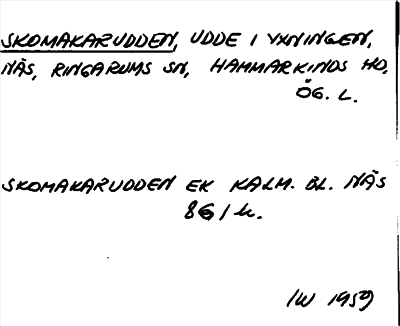 SKOMAKARUDDEN, UDDE I YXNINGEN,
NÄS, RINGARUMS SN, HAMMARKINDS HD,
ÖG. L.
SKOMAKARUDDEN EK KALM. BL. NÄS
86 / h.
IW 1959